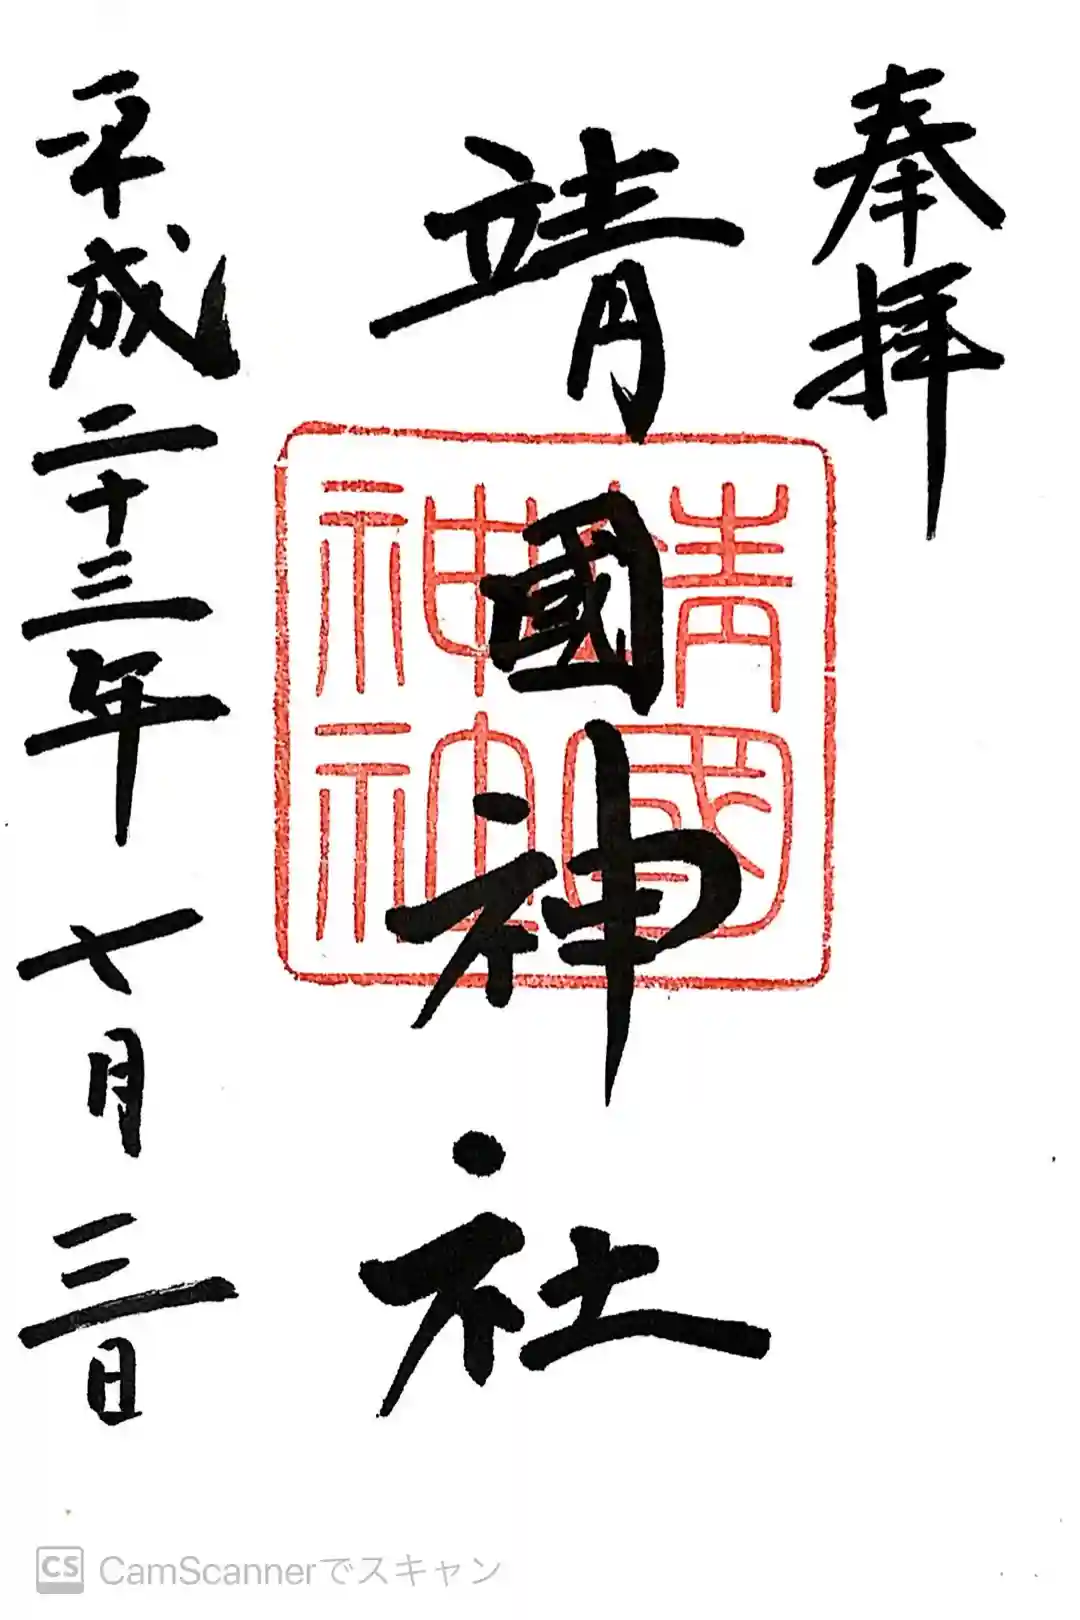 奉拝
靖國神社
靖國神社
平成二十三年七月三日
CS CamScannerでスキャン